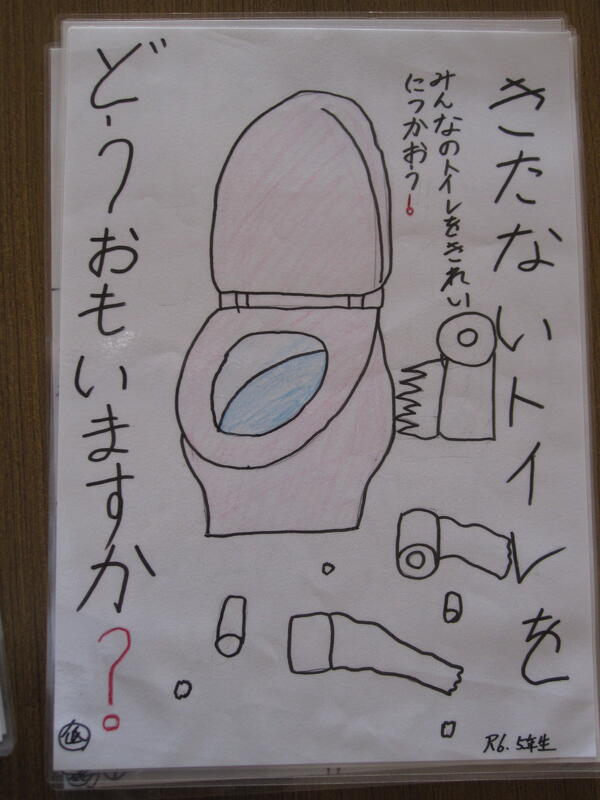 きたないトイレを
みんなのトイレをきれい
につかおう!
どうおもいますか?
低
R6. 5年生